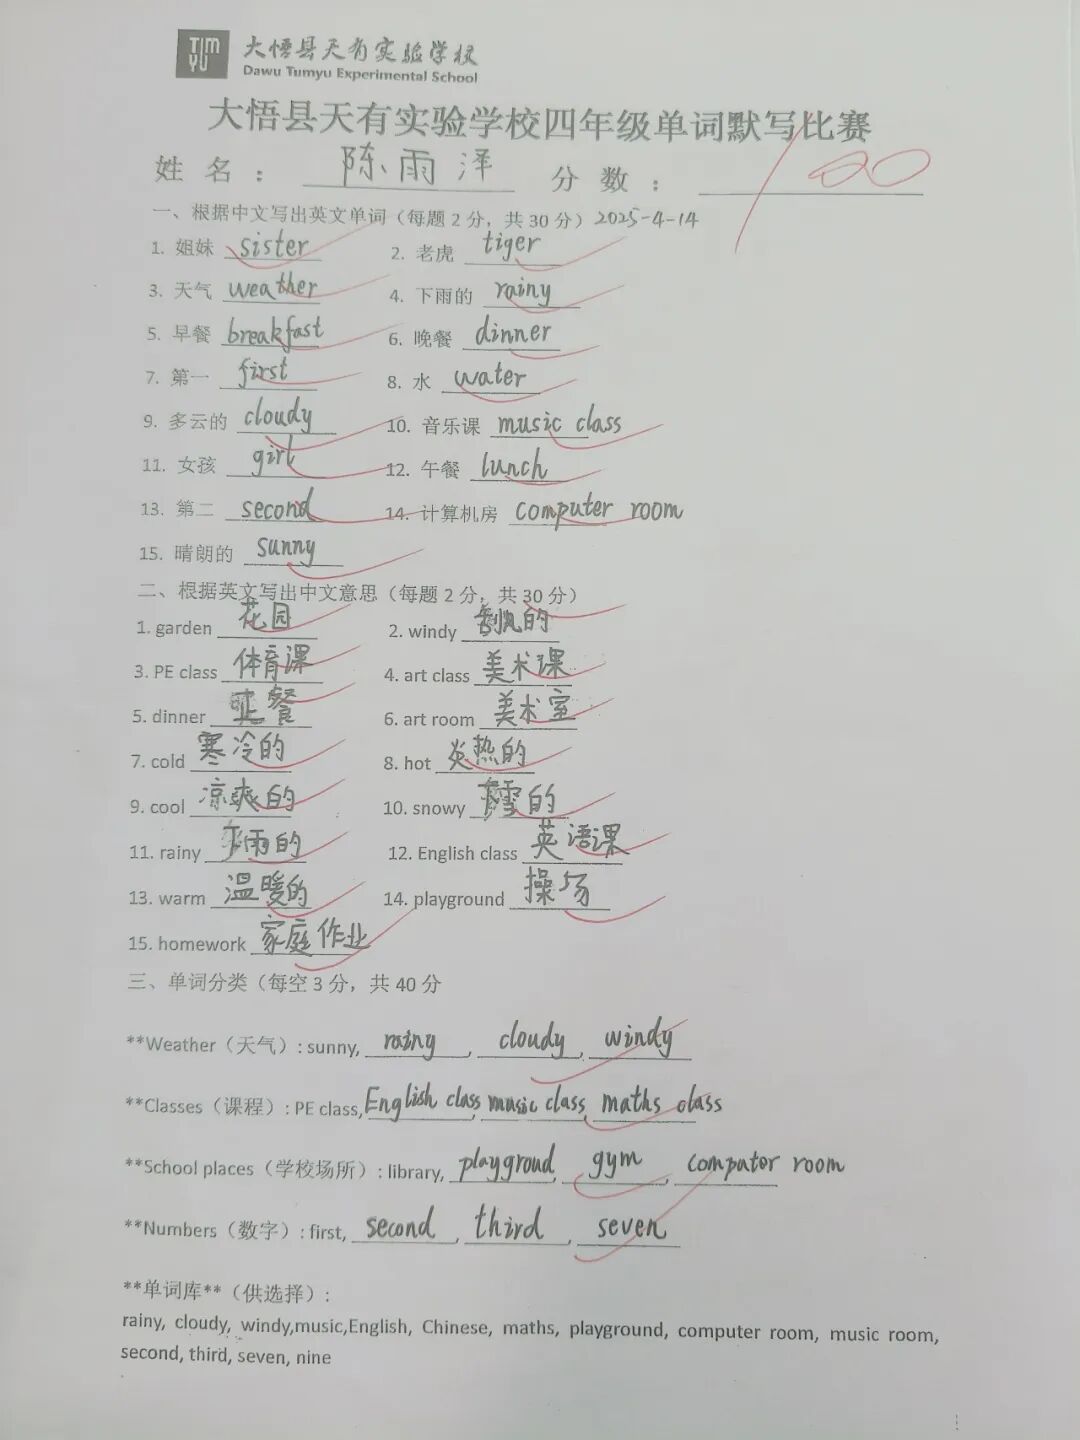 TIM YU 大悟县天有实验学校
Dawu Tumyu Experimental School
大悟县天有实验学校四年级单词默写比赛
姓 名 ： 陈雨泽 分 数 ： 100
一、根据中文写出英文单词（每题 2 分，共 30 分）2025-4-14
1. 姐妹 sister 2. 老虎 tiger
3. 天气 weather 4. 下雨的 rainy
5. 早餐 breakfast 6. 晚餐 dinner
7. 第一 first 8. 水 water
9. 多云的 cloudy 10. 音乐课 music class
11. 女孩 girl 12. 午餐 lunch
13. 第二 second 14. 计算机房 computer room
15. 晴朗的 sunny
二、根据英文写出中文意思（每题 2 分，共 30 分）
1. garden 花园 2. windy 刮风的
3. PE class 体育课 4. art class 美术课
5. dinner 正餐 6. art room 美术室
7. cold 寒冷的 8. hot 炎热的
9. cool 凉爽的 10. snowy 下雪的
11. rainy 下雨的 12. English class 英语课
13. warm 温暖的 14. playground 操场
15. homework 家庭作业
三、单词分类（每空 3 分，共 40 分
**Weather（天气）: sunny, rainy, cloudy, windy
**Classes（课程）: PE class, English class, music class, maths class
**School places（学校场所）: library, playgroud, gym, computer room
**Numbers（数字）: first, second, third, seven
**单词库**（供选择）:
rainy, cloudy, windy,music,English, Chinese, maths, playground, computer room, music room,
second, third, seven, nine